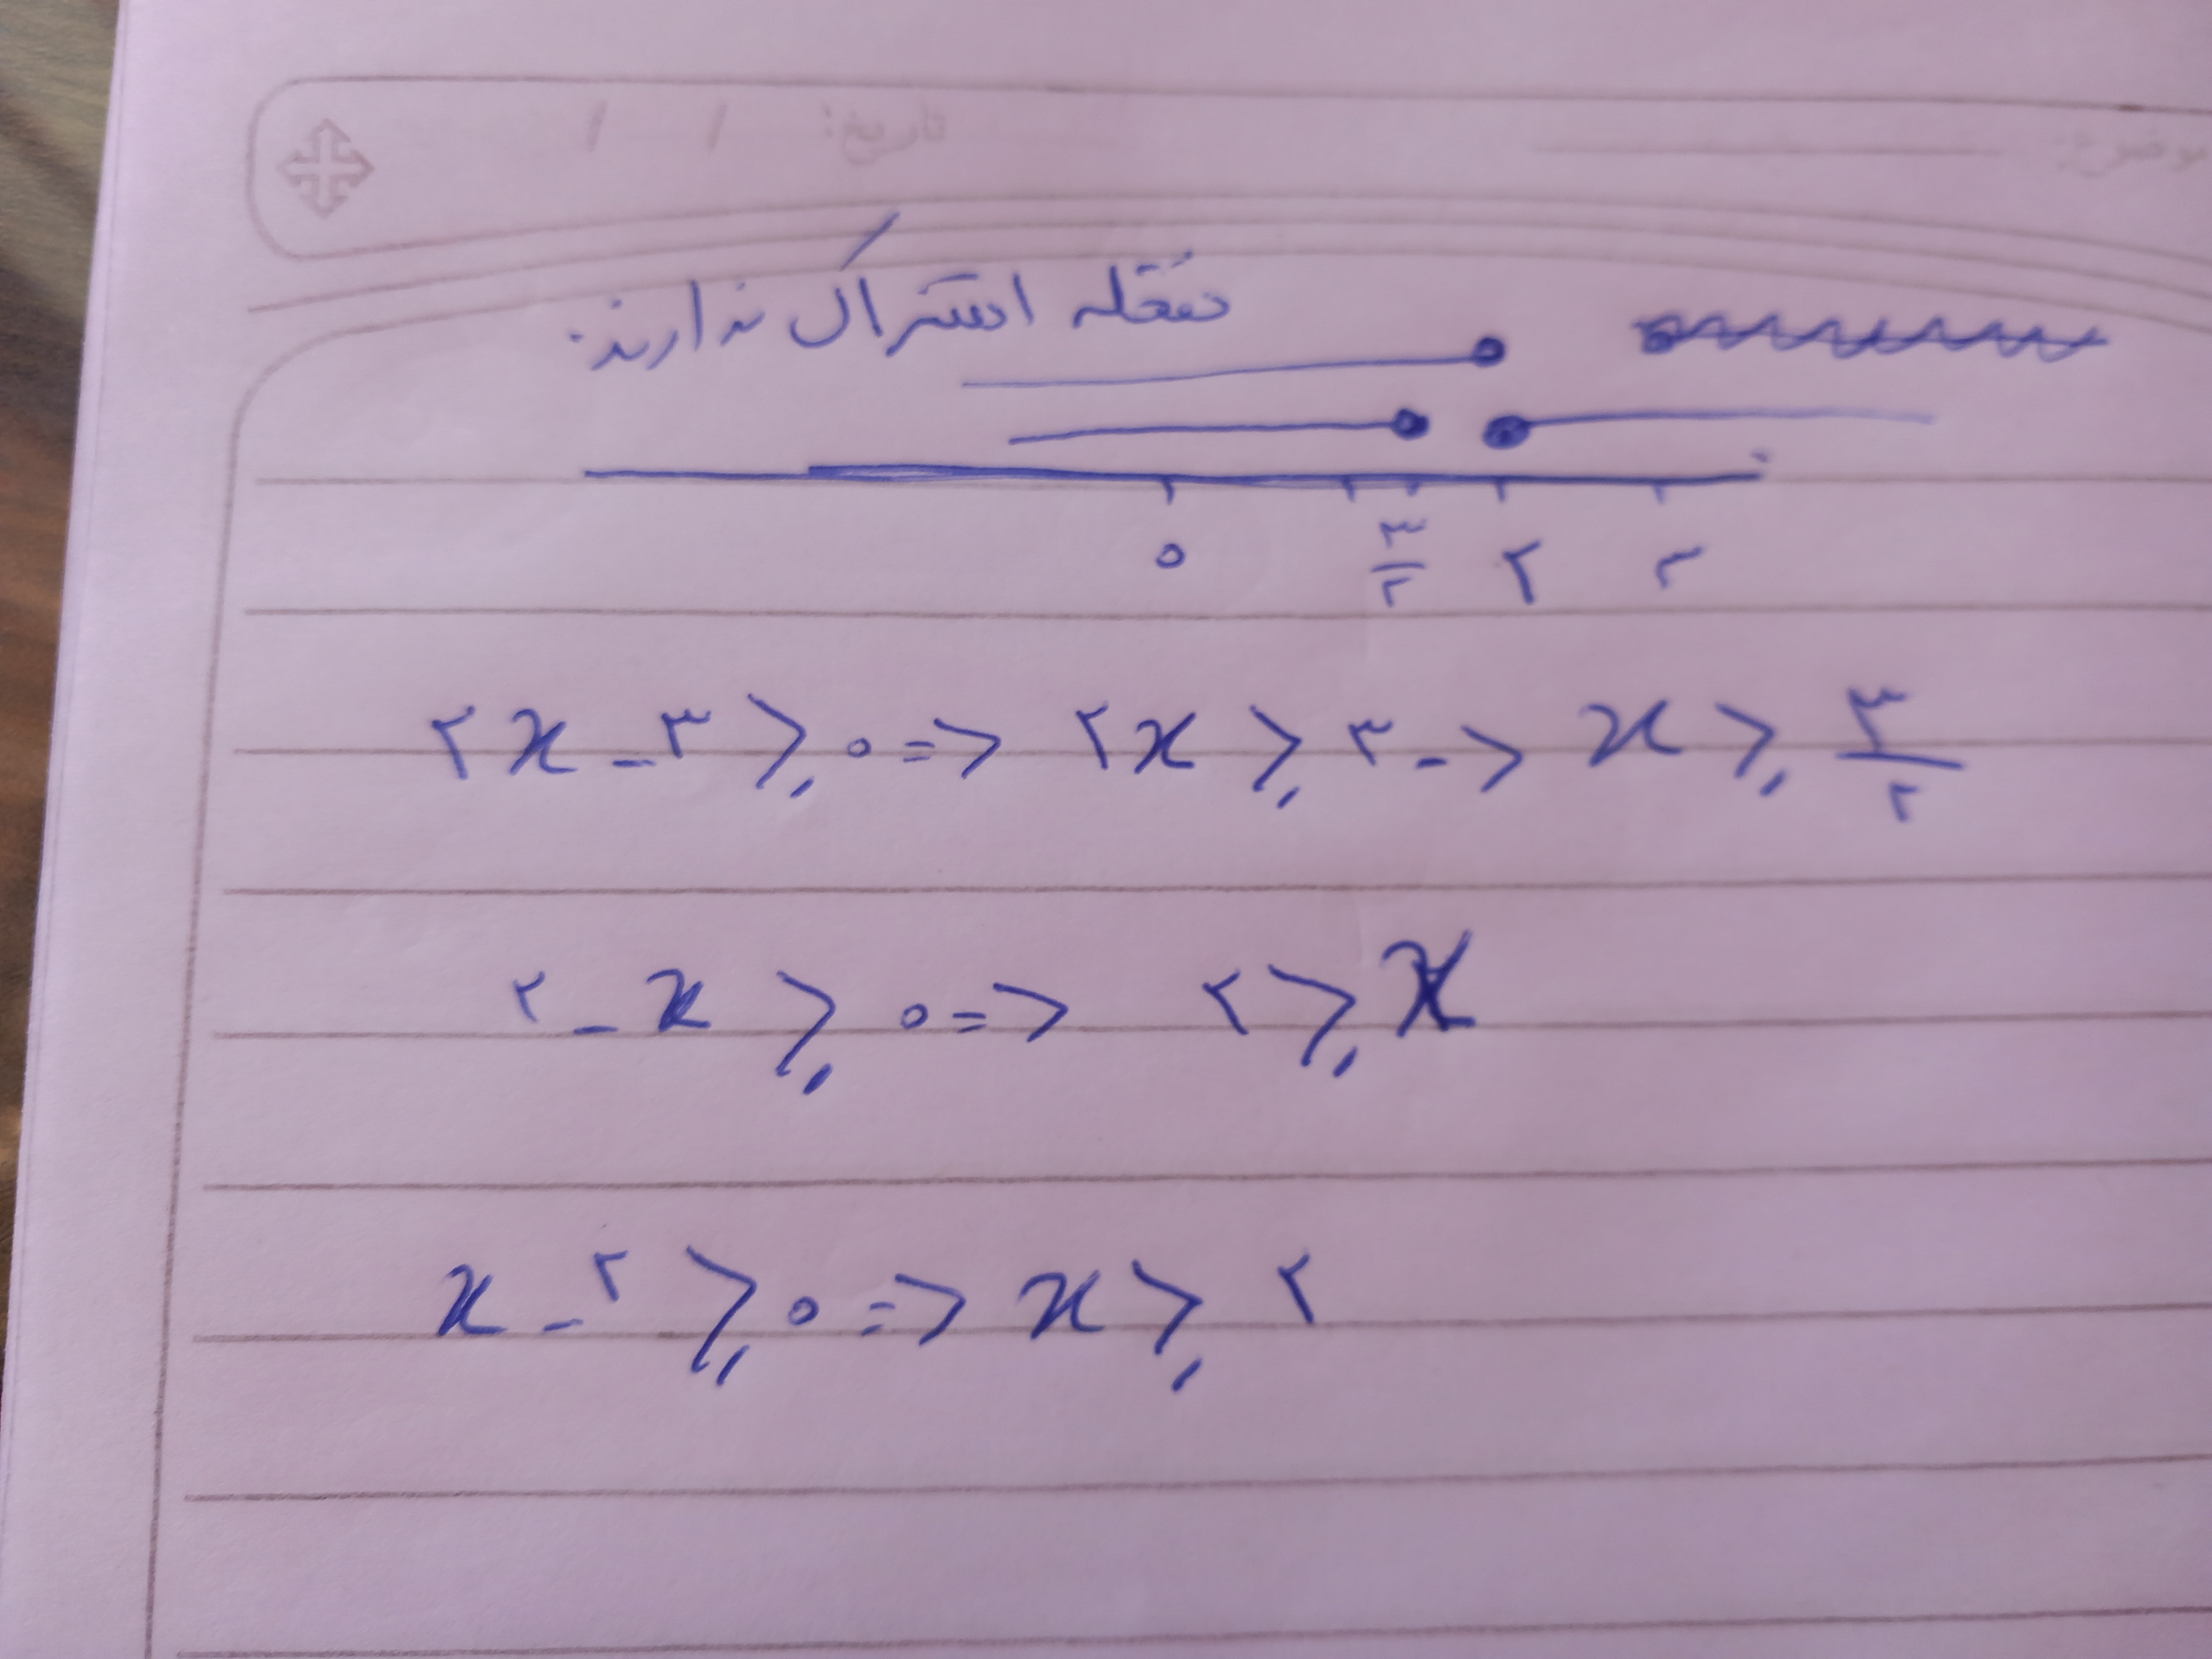 موضوع: تاریخ: / /
نقطه اشتراک ندارند.
۰ ۳/۲ ۲ ۳
۲x - ۳ ⩾ ۰ => ۲x ⩾ ۳ -> x ⩾ ۳/۲
۲ - x ⩾ ۰ => ۲ ⩾ x
x - ۲ ⩾ ۰ => x ⩾ ۲